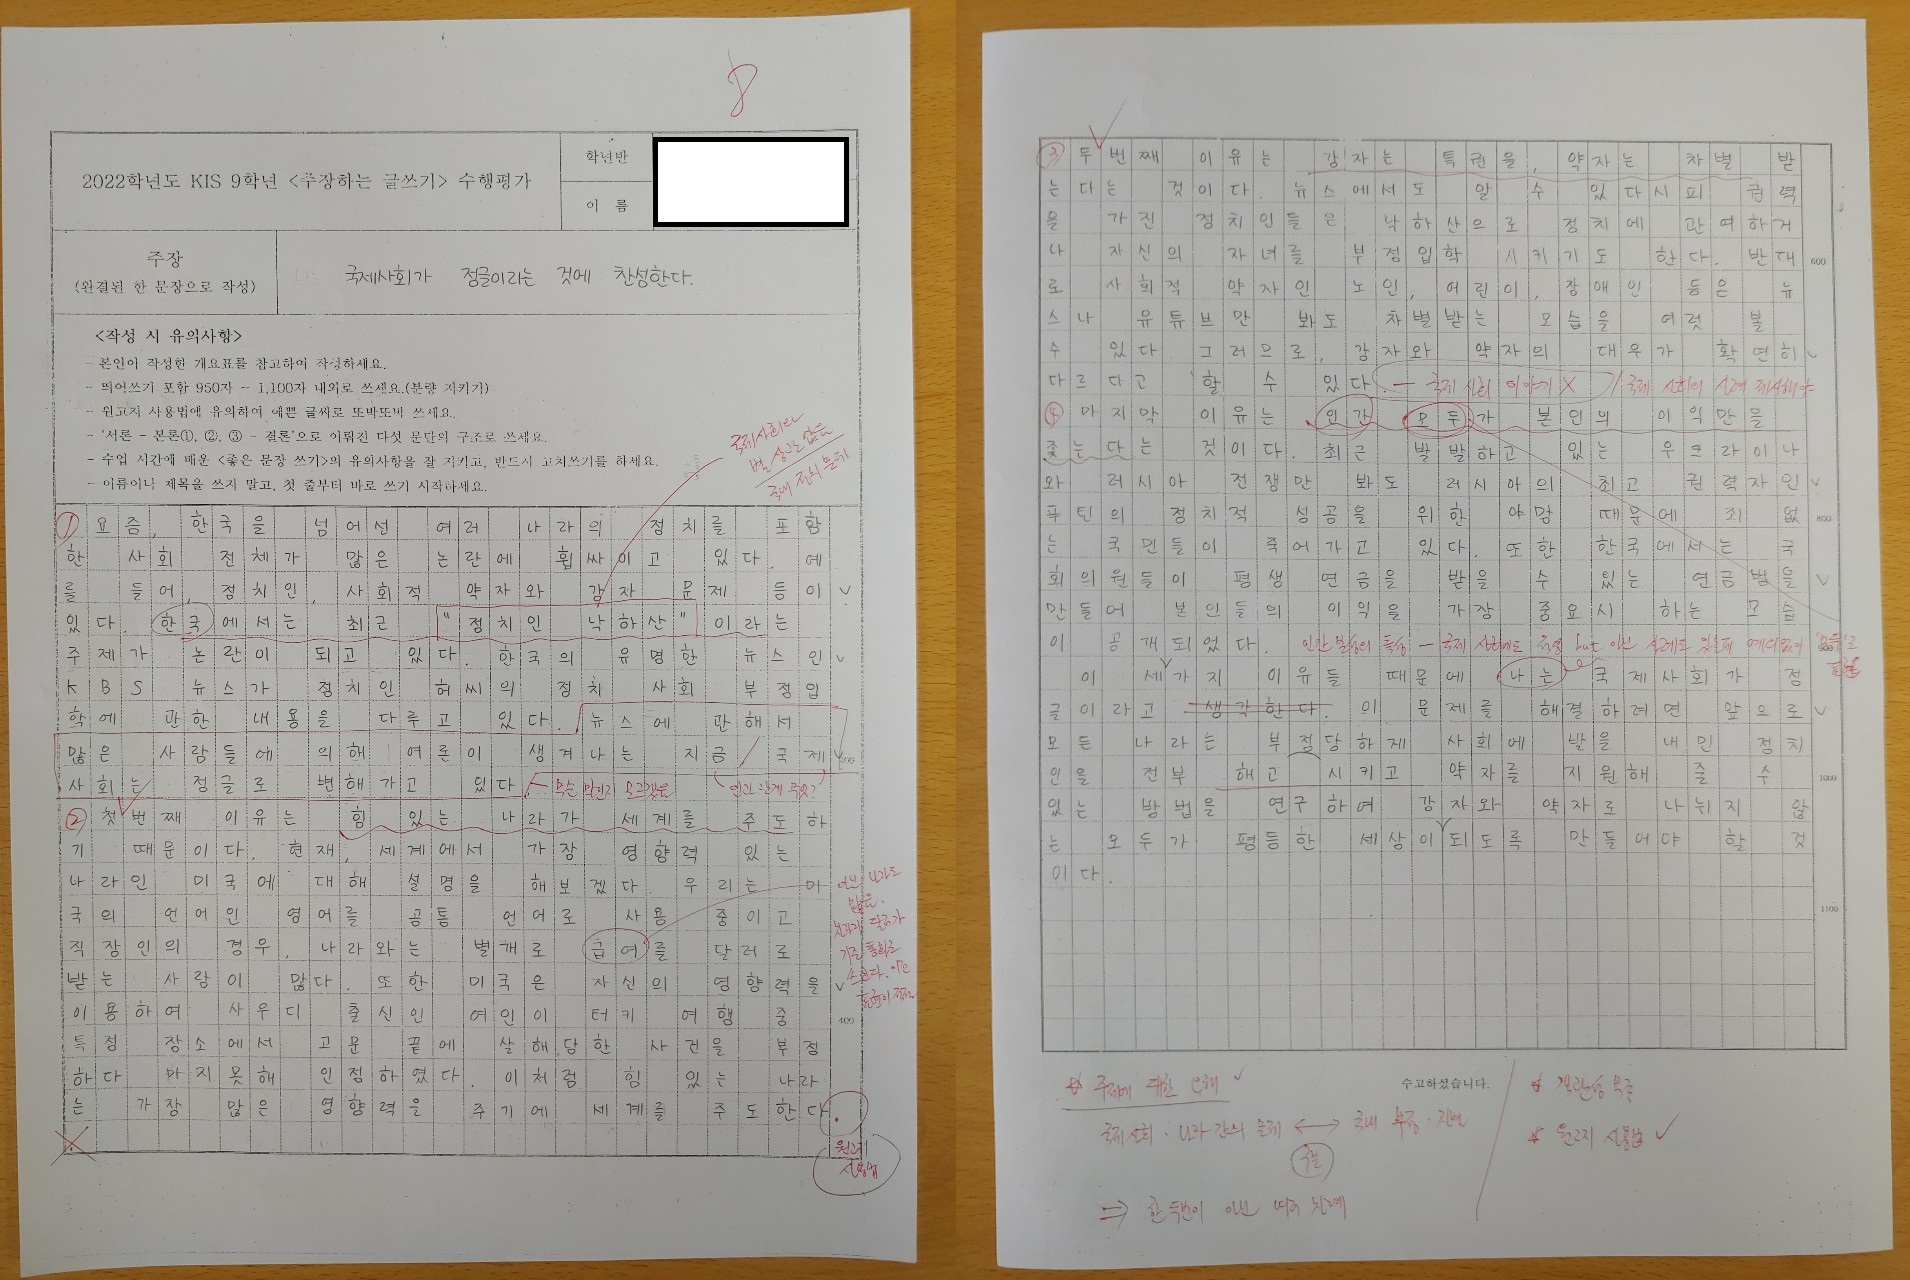 8
2022학년도 KIS 9학년 <주장하는 글쓰기> 수행평가
학년반
이 름
주장
(완결된 한 문장으로 작성)
국제사회가 정글이라는 것에 찬성한다.
<작성 시 유의사항>
- 본인이 작성한 개요표를 참고하여 작성하세요.
- 띄어쓰기 포함 950자 - 1,100자 내외로 쓰세요.(분량 지키기)
- 원고지 사용법에 유의하여 예쁜 글씨로 또박또박 쓰세요.
- '서론 - 본론①, ②, ③ - 결론'으로 이뤄진 다섯 문단의 구조로 쓰세요.
- 수업 시간에 배운 <좋은 문장 쓰기>의 유의사항을 잘 지키고, 반드시 고쳐쓰기를 하세요.
- 이름이나 제목을 쓰지 말고, 첫 줄부터 바로 쓰기 시작하세요.
국제사회와
별 상관 없는
국내 정치 문제
① 요즘, 한국을 넘어선 여러 나라의 정치를 포함
한 사회 전체가 많은 논란에 휩싸이고 있다. 예
를 들어, 정치인, 사회적 약자와 강자 문제 등이
있다. 한국에서는 최근 "정치인 낙하산"이라는
주제가 논란이 되고 있다. 한국의 유명한 뉴스인
KBS 뉴스가 정치인 허씨의 정치 사회 부정입
학에 관한 내용을 다루고 있다. 뉴스에 관해서
많은 사람들에 의해 여론이 생겨나는 지금 국제
사회는 정글로 변해가고 있다.
무슨 말인지 모르겠음
인과 관계 부족?
② 첫번째 이유는 힘 있는 나라가 세계를 주도하
기 때문이다. 현재, 세계에서 가장 영향력 있는
나라인 미국에 대해 설명을 해보겠다. 우리는 미
국의 언어인 영어를 공통 언어로 사용 중이고
직장인의 경우, 나라와는 별개로 급여를 달러로
받는 사람이 많다. 또한 미국은 자신의 영향력을
이용하여 사우디 출신인 여인이 터키 여행 중
400
특정 장소에서 고문 끝에 살해당한 사건을 부정
하다 마지못해 인정하였다. 이처럼 힘 있는 나라
는 가장 많은 영향력을 주기에 세계를 주도한다.
아닌 나라도
많음.
달러가
기준 통화로
쓰인다.
원고지
사용법
③ 두번째 이유는 강자는 특권을, 약자는 차별 받
는다는 것이다. 뉴스에서도 알 수 있다시피 권력
을 가진 정치인들은 낙하산으로 정치에 관여하거
나 자신의 자녀를 부정입학 시키기도 한다. 반대
600
로 사회적 약자인 노인, 어린이, 장애인 등은 뉴
스나 유튜브만 봐도 차별받는 모습을 여럿 볼
수 있다. 그러므로, 강자와 약자의 대우가 확연히
다르다고 할 수 있다.
국제 사회 이야기 X / 국제 사회의 사례 제시해야
④ 마지막 이유는 인간 모두가 본인의 이익만을
좇는다는 것이다. 최근 발발하고 있는 우크라이나
와 러시아 전쟁만 봐도 러시아의 최고 권력자인
푸틴의 정치적 성공을 위한 야망 때문에 죄 없
800
는 국민들이 죽어가고 있다. 또한 한국에서는 국
회의원들이 평생 연금을 받을 수 있는 연금법을
만들어 본인들의 이익을 가장 중요시 하는 모습
이 공개되었다.
인간 본성의 특성 - 국제 사회에도 적용 but 아닌 사례도 있는데
이 세가지 이유들 때문에 나는 국제사회가 정
글이라고 생각한다. 이 문제를 해결하려면 앞으로
모든 나라는 부정당하게 사회에 발을 내민 정치
인을 전부 해고 시키고 약자를 지원해 줄 수
1000
있는 방법을 연구하여 강자와 약자로 나뉘지 않
는 모두가 평등한 세상이 되도록 만들어야 할 것
이다.
1100
수고하셨습니다.
☆ 주제에 대한 오해
국제사회. 나라 간의 문제 ↔ 국내 부정·차별
구분
⇒ 한 국면이 아닌
☆ 객관성 부족
☆ 원고지 사용법